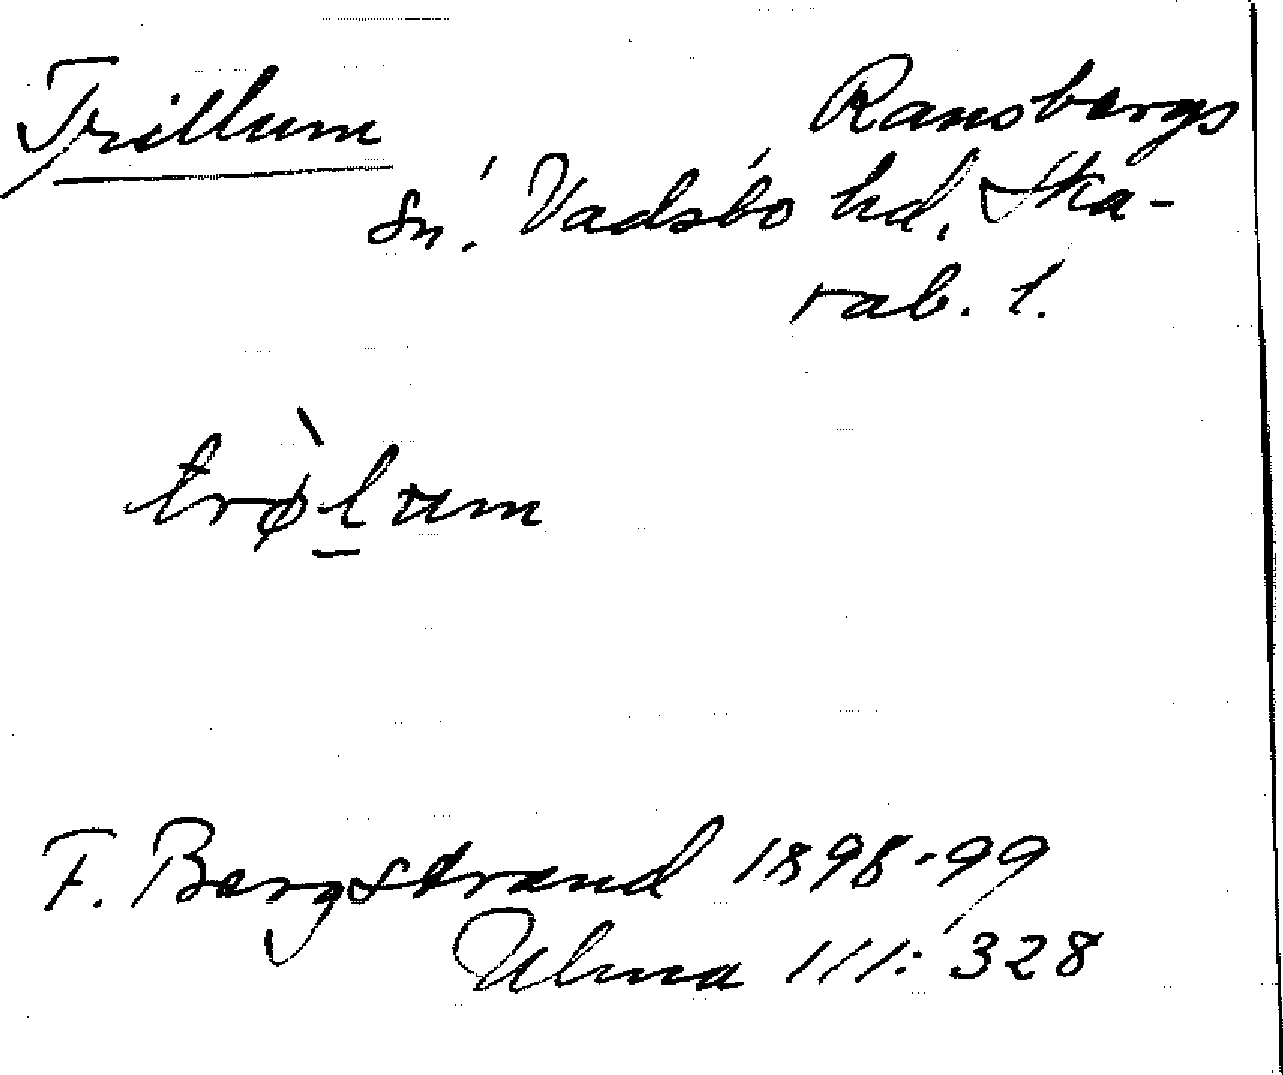 Trillum
Ransbergs
sn. Vadsbo hd. Ska-
rab. l.
trø̀l̲um
F. Bergstrand 1898-99
Ulma 111: 328